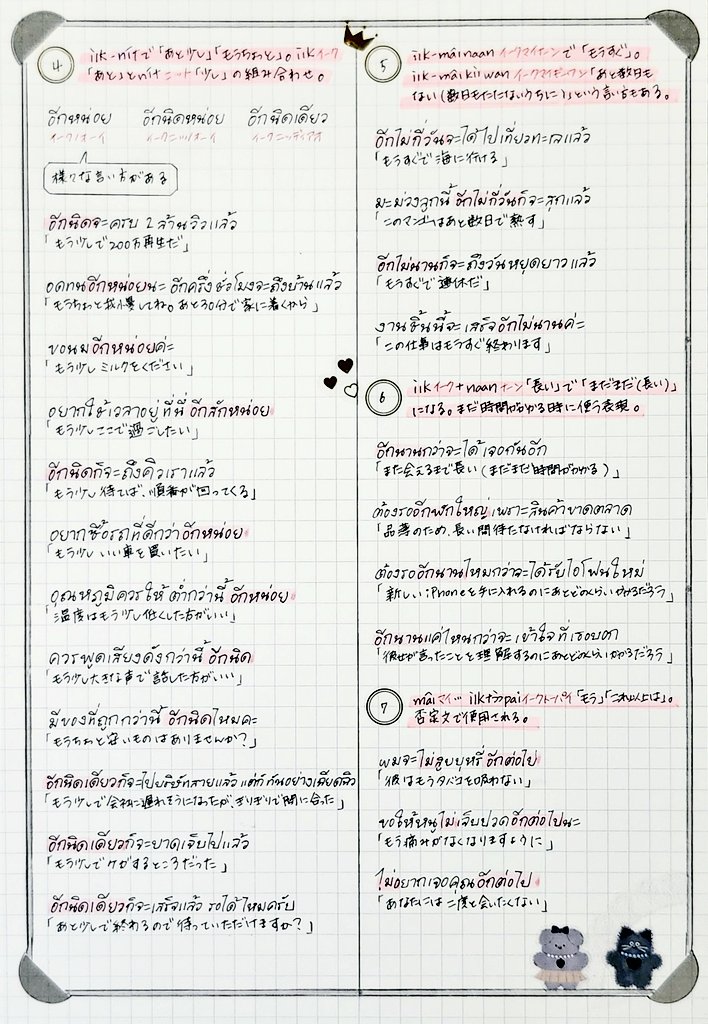 4
iik-nitで「あと少し」「もうちょっと」。iikイーク
「あと」とnitニット「少し」の組み合わせ。
อีกหน่อย อีกนิดหน่อย อีกนิดเดียว
イークノーイ イークニッノーイ イークニッディアオ
様々な言い方がある
อีกนิดจะครบ 2 ล้านวิวแล้ว
「もう少しで200万再生だ」
อดทนอีกหน่อยนะ อีกครึ่งชั่วโมงจะถึงบ้านแล้ว
「もうちょっと我慢してね。あと30分で家に着くから」
ขอนมอีกหน่อยค่ะ
「もう少しミルクをください」
อยากใช้เวลาอยู่ที่นี่ อีกสักหน่อย
「もう少しここで過ごしたい」
อีกนิดก็จะถึงคิวเราแล้ว
「もう少し待てば、順番が回ってくる」
อยากซื้อรถที่ดีกว่าอีกหน่อย
「もう少しいい車を買いたい」
อุณหภูมิควรให้ต่ำกว่านี้ อีกหน่อย
「温度はもう少し低くした方がいい」
ควรพูดเสียงดังกว่านี้ อีกนิด
「もう少し大きな声で話した方がいい」
มีของที่ถูกกว่านี้ อีกนิดไหมคะ
「もうちょっと安いものはありませんか？」
อีกนิดเดียวก็จะไปบริษัทสายแล้ว แต่ก็ทันอย่างเฉียดฉิว
「もう少しで会社に遅れそうになったが、ぎりぎりで間に合った」
อีกนิดเดียวก็จะบาดเจ็บไปแล้ว
「もう少しでケガするところだった」
อีกนิดเดียวก็จะเสร็จแล้ว รอได้ไหมครับ
「あと少しで終わるので待っていただけますか？」
5
iik-mâinaanイークマイナーンで「もうすぐ」。
iik-mâikìiwanイークマイギーワン「あと数日も
ない(数日もたたないうちに)」という言い方もある。
อีกไม่กี่วันจะได้ไปเที่ยวทะเลแล้ว
「もうすぐで海に行ける」
มะม่วงลูกนี้ อีกไม่กี่วันก็จะสุกแล้ว
「このマンゴーはあと数日で熟す」
อีกไม่นานก็จะถึงวันหยุดยาวแล้ว
「もうすぐで連休だ」
งานชิ้นนี้จะเสร็จอีกไม่นานค่ะ
「この仕事はもうすぐ終わります」
6
iikイーク+naanナーン「長い」で「まだまだ(長い)」
になる。まだ時間がかかる時に使う表現。
อีกนานกว่าจะได้เจอกันอีก
「また会えるまで長い(まだまだ時間がかかる)」
ต้องรออีกพักใหญ่ เพราะสินค้าขาดตลาด
「品薄のため、長い間待たなければならない」
ต้องรออีกนานไหมกว่าจะได้รับไอโฟนใหม่
「新しいiPhoneを手に入れるのにあとどのくらいかかるだろう」
อีกนานแค่ไหนกว่าจะเข้าใจที่เธอบอก
「彼女が言ったことを理解するのにあとどのくらいかかるだろう」
7
mâiマイ… iik tɔ̀paiイークトーパイ「もう」「これ以上は」。
否定文で使用される。
ผมจะไม่สูบบุหรี่ อีกต่อไป
「僕はもうタバコを吸わない」
ขอให้หนูไม่เจ็บปวด อีกต่อไปนะ
「もう痛みがなくなりますように」
ไม่อยากเจอคุณอีกต่อไป
「あなたには二度と会いたくない」